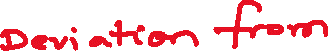 Deviation from